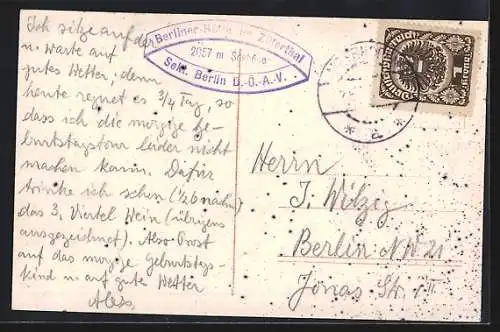 Ich sitze auf der
u. warte auf
gutes Wetter, denn
heute regnet es 3/4 Tag, so
dass ich die morgige Ge-
burtstagstour leider nicht
machen kann. Dafür
trinke ich schon (1/2 6 nachm)
das 3. Viertel Wein (übrigens
ausgezeichnet). Also Prost
auf das morgige Geburtstags-
kind u. auf gutes Wetter
Berliner-Hütte im Zillerthal
2057 m Seehöhe
Sekt. Berlin D.-Ö.A.V.
Deutschösterreich
1
Herrn
J. Wilzig
Berlin NW 21
Jonas Str.